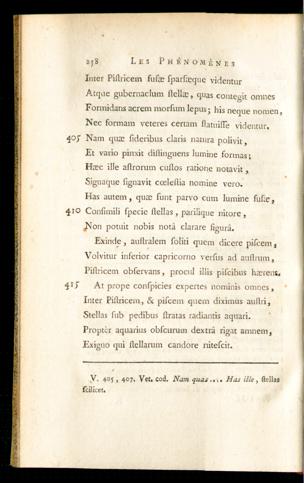 258 LES PHÉNOMÈNES
Inter Piſtricem fuſæ ſparſæque videntur
Atque gubernaclum ſtellæ, quas contegit omnes
Formidans acrem morſum lepus; his neque nomen,
Nec formam veteres certam ſtatuiſſe videntur.
405 Nam quæ ſideribus claris natura polivit,
Et vario pinxit diſtinguens lumine formas;
Hæc ille aſtrorum cuſtos ratione notavit,
Signaque ſignavit cœleſtia nomine vero.
Has autem, quæ ſunt parvo cum lumine fuſæ,
410 Conſimili ſpecie ſtellas, parilique nitore,
Non potuit nobis notâ clarare figurâ.
Exinde, auſtralem ſoliti quem dicere piſcem,
Volvitur inferior capricorno verſus ad auſtrum,
Piſtricem obſervans, procul illis piſcibus hærens.
415 At prope conſpicies expertes nominis omnes,
Inter Piſtricem, & piſcem quem diximus auſtri,
Stellas ſub pedibus ſtratas radiantis aquari.
Proptèr aquarius obſcurum dextrâ rigat amnem,
Exiguo qui ſtellarum candore niteſcit.
V. 405, 407. Vet. cod. Nam quas .... Has ille, ſtellas
ſcilicet.